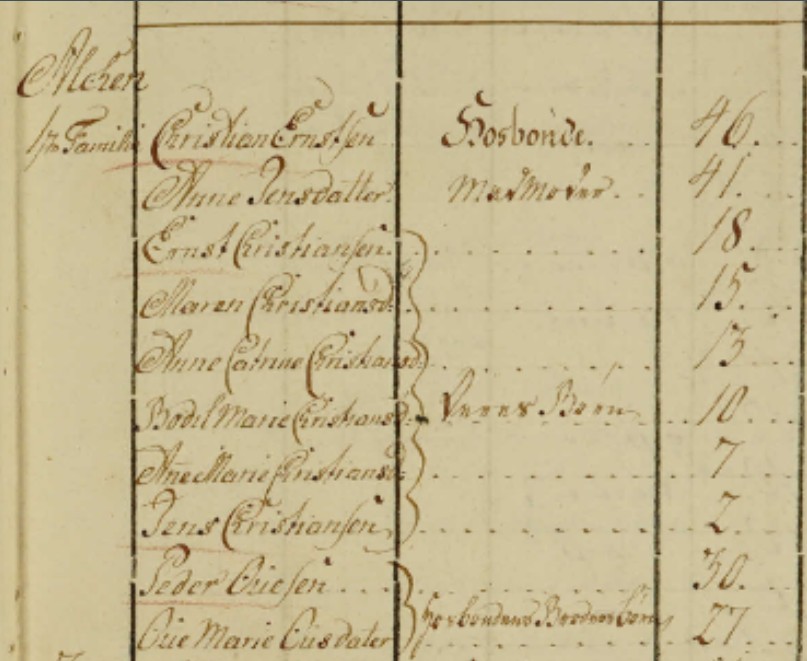 Alchen
1ste Famili Christian Ernstsen Hosbonde. 46.
Anne Jensdatter. Madmoder. 41.
Ernst Christiansen. 18.
Maren Christiansd: 15.
Anne Catrine Christiansd: 13
Bodil Marie Christiansd: Deres Børn 10.
Añe Marie Christiansd: 7
Jens Christiansen 2.
Peder 30.
Marie Hosbondens 27